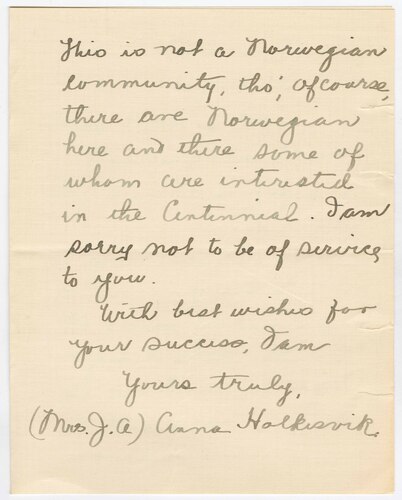 This is not a Norwegian
community, tho', of course,
there are Norwegian
here and there some of
whom are interested
in the Centennial. I am
sorry not to be of service
to you.
With best wishes for
your success, I am
Yours truly,
(Mrs. J. A) Anna Holkesvik.